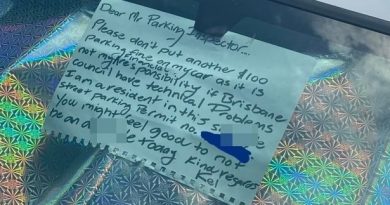 Dear Mr Parking Inspector....
Please don't put another $100
Parking fine on my car as it is
not my responsibility if Brisbane
council have technical Problems
I am a resident in this
street parking permit no.
You might feel good to not
be an today Kind regards
Kel